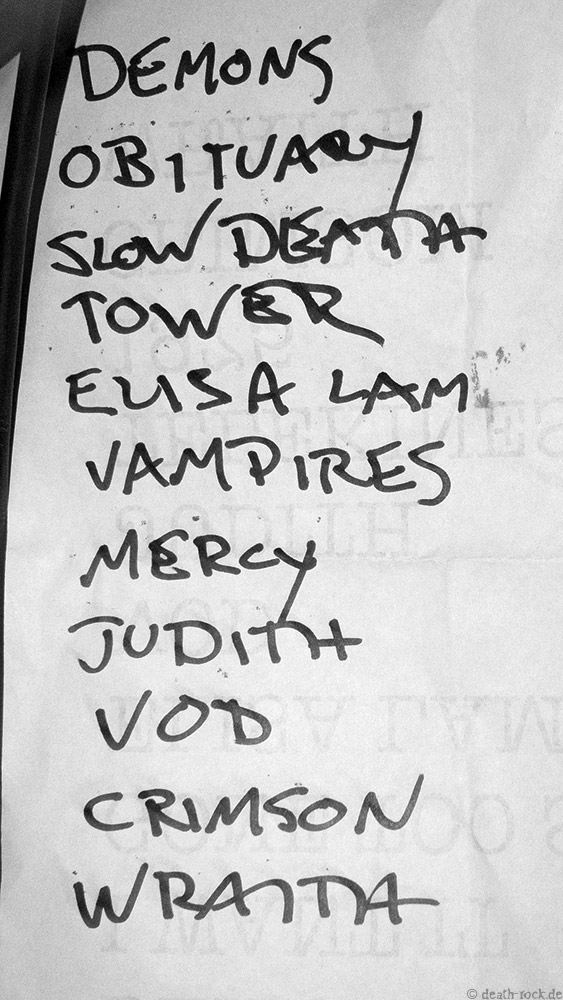 DEMONS
OBITUARY
SLOW DEATH
TOWER
ELISA LAM
VAMPIRES
MERCY
JUDITH
VOD
CRIMSON
WRAITH
© death-rock.de